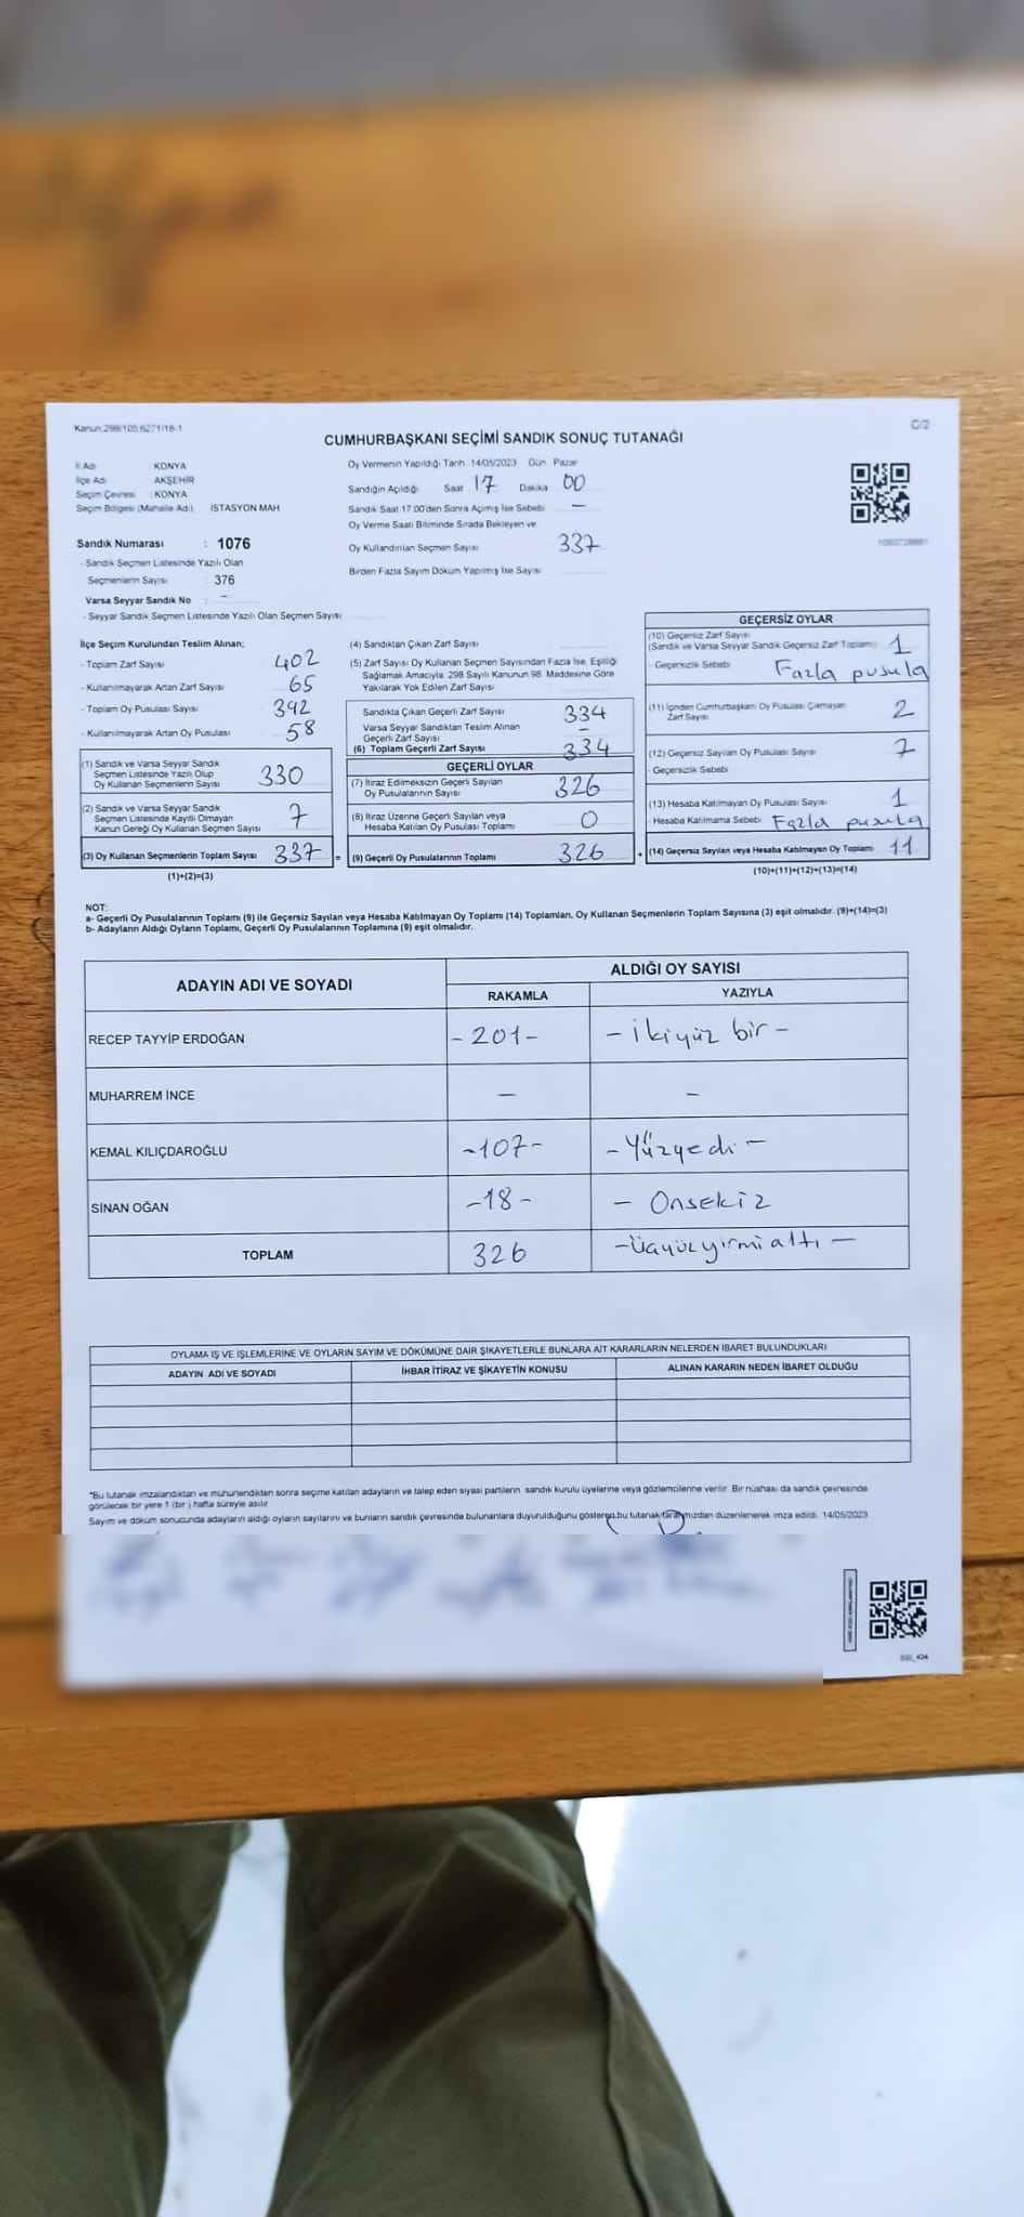 Kanun:298/105,6271/18-1
C/2
CUMHURBAŞKANI SEÇİMİ SANDIK SONUÇ TUTANAĞI
İl Adı : KONYA
İlçe Adı : AKŞEHİR
Seçim Çevresi : KONYA
Seçim Bölgesi (Mahalle Adı) : İSTASYON MAH
Sandık Numarası : 1076
- Sandık Seçmen Listesinde Yazılı Olan
Seçmenlerin Sayısı : 376
Varsa Seyyar Sandık No : -
- Seyyar Sandık Seçmen Listesinde Yazılı Olan Seçmen Sayısı
Oy Vermenin Yapıldığı Tarih :14/05/2023 Gün : Pazar
Sandığın Açıldığı Saat 17 Dakika 00
Sandık Saat 17:00'den Sonra Açılmış İse Sebebi -
Oy Verme Saati Bitiminde Sırada Bekleyen ve
Oy Kullandırılan Seçmen Sayısı 337
Birden Fazla Sayım Döküm Yapılmış İse Sayısı
İlçe Seçim Kurulundan Teslim Alınan;
- Toplam Zarf Sayısı 402
- Kullanılmayarak Artan Zarf Sayısı 65
- Toplam Oy Pusulası Sayısı 392
- Kullanılmayarak Artan Oy Pusulası 58
(1) Sandık ve Varsa Seyyar Sandık
Seçmen Listesinde Yazılı Olup
Oy Kullanan Seçmenlerin Sayısı 330
(2) Sandık ve Varsa Seyyar Sandık
Seçmen Listesinde Kayıtlı Olmayan
Kanun Gereği Oy Kullanan Seçmen Sayısı 7
(3) Oy Kullanan Seçmenlerin Toplam Sayısı 337 =
(1)+(2)=(3)
(4) Sandıktan Çıkan Zarf Sayısı
(5) Zarf Sayısı Oy Kullanan Seçmen Sayısından Fazla İse, Eşitliği
Sağlamak Amacıyla, 298 Sayılı Kanunun 98. Maddesine Göre
Yakılarak Yok Edilen Zarf Sayısı
Sandıkta Çıkan Geçerli Zarf Sayısı 334
Varsa Seyyar Sandıktan Teslim Alınan
Geçerli Zarf Sayısı -
(6) Toplam Geçerli Zarf Sayısı 334
GEÇERLİ OYLAR
(7) İtiraz Edilmeksizin Geçerli Sayılan
Oy Pusulalarının Sayısı 326
(8) İtiraz Üzerine Geçerli Sayılan veya
Hesaba Katılan Oy Pusulası Toplamı 0
(9) Geçerli Oy Pusulalarının Toplamı 326 +
GEÇERSİZ OYLAR
(10) Geçersiz Zarf Sayısı
(Sandık ve Varsa Seyyar Sandık Geçersiz Zarf Toplamı) 1
- Geçersizlik Sebebi Fazla pusula
(11) İçinden Cumhurbaşkanı Oy Pusulası Çıkmayan
Zarf Sayısı 2
(12) Geçersiz Sayılan Oy Pusulası Sayısı 7
- Geçersizlik Sebebi
(13) Hesaba Katılmayan Oy Pusulası Sayısı 1
- Hesaba Katılmama Sebebi Fazla pusula
(14) Geçersiz Sayılan veya Hesaba Katılmayan Oy Toplamı 11
(10)+(11)+(12)+(13)=(14)
NOT:
a- Geçerli Oy Pusulalarının Toplamı (9) ile Geçersiz Sayılan veya Hesaba Katılmayan Oy Toplamı (14) Toplamları, Oy Kullanan Seçmenlerin Toplam Sayısına (3) eşit olmalıdır. (9)+(14)=(3)
b- Adayların Aldığı Oyların Toplamı, Geçerli Oy Pusulalarının Toplamına (9) eşit olmalıdır.
ADAYIN ADI VE SOYADI
ALDIĞI OY SAYISI
RAKAMLA YAZIYLA
RECEP TAYYİP ERDOĞAN -201- - ikiyüz bir -
MUHARREM İNCE - -
KEMAL KILIÇDAROĞLU -107- - Yüzyedi -
SİNAN OĞAN -18- - Onsekiz
TOPLAM 326 -üçyüzyirmialtı -
OYLAMA İŞ VE İŞLEMLERİNE VE OYLARIN SAYIM VE DÖKÜMÜNE DAİR ŞİKAYETLERLE BUNLARA AİT KARARLARIN NELERDEN İBARET BULUNDUKLARI
ADAYIN ADI VE SOYADI İHBAR İTİRAZ VE ŞİKAYETİN KONUSU ALINAN KARARIN NEDEN İBARET OLDUĞU
*Bu tutanak imzalandıktan ve mühürlendikten sonra seçime katılan adayların ve talep eden siyasi partilerin sandık kurulu üyelerine veya gözlemcilerine verilir. Bir nüshası da sandık çevresinde
görülecek bir yere 1 (bir ) hafta süreyle asılır.
Sayım ve döküm sonucunda adayların aldığı oyların sayılarını ve bunların sandık çevresinde bulunanlara duyurulduğunu gösteren bu tutanak tarafımızdan düzenlenerek imza edildi. 14/05/2023